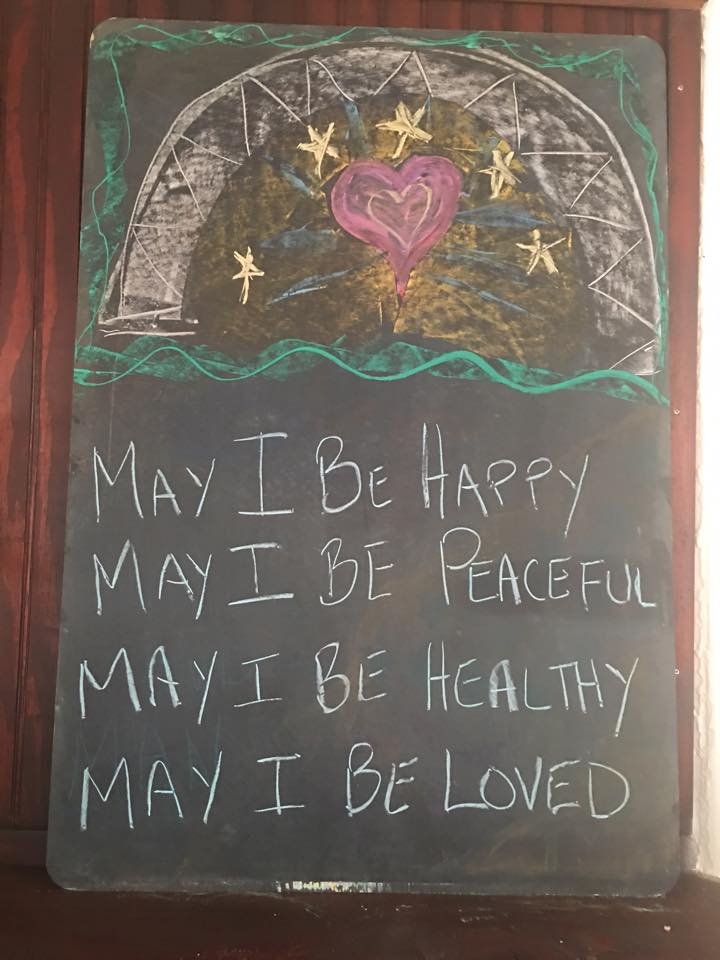 MAY I BE HAPPY
MAY I BE PEACEFUL
MAY I BE HEALTHY
MAY I BE LOVED